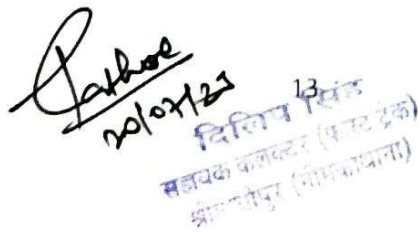 20/07/23
13
दिलिप सिंह
सहायक कलक्टर (फास्ट ट्रेक)
(नीमकाथाना)